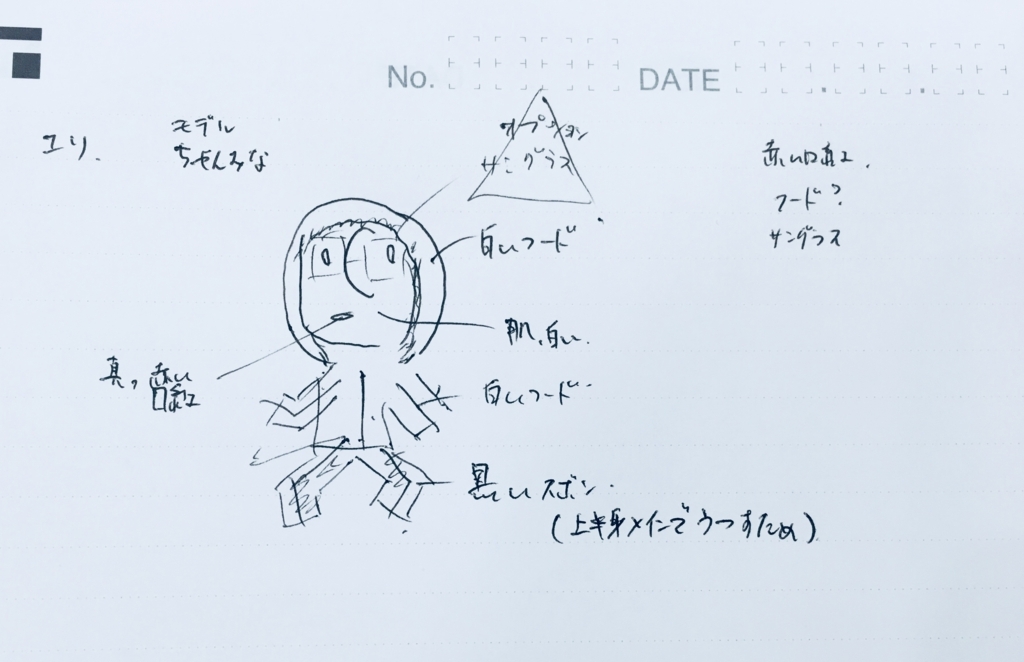 No.
DATE
エリ.
モデル
ちゃんみな
オプション
サングラス
赤い口紅.
フード?
サングラス
白いフード
肌,白い.
真っ赤い
口紅
白いフード
黒いズボン.
(上半身メインでうつすため)